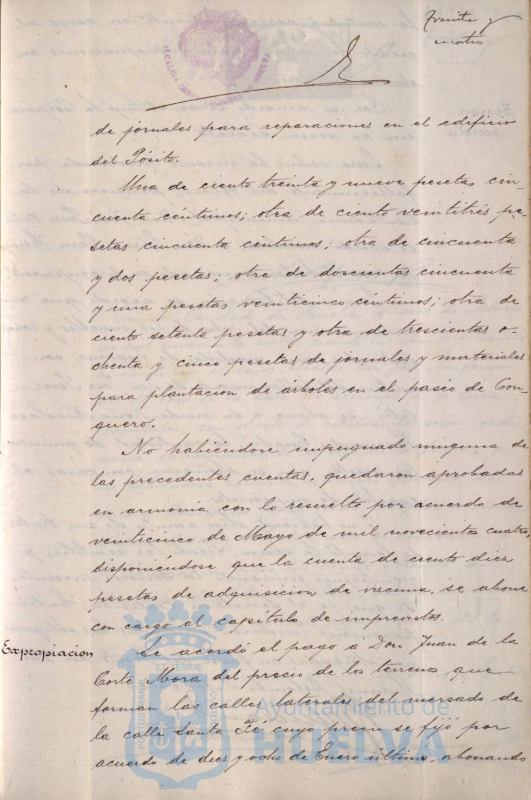 Treinta y
cuatro
de jornales para reparaciones en el edificio
del Pósito.
Una de ciento treinta y nueve pesetas cin-
cuenta céntimos; otra de ciento veintitrés pe-
setas cincuenta céntimos; otra de cincuenta
y dos pesetas; otra de doscientas cincuenta
y una pesetas veinticinco céntimos; otra de
ciento setenta pesetas y otra de trescientas o-
chenta y cinco pesetas de jornales y materiales
para plantacion de árboles en el paseo de Con-
quero.
No habiéndose impugnado ninguna de
las precedentes cuentas, quedaron aprobadas
en armonia con lo resuelto por acuerdo de
veinticinco de Mayo de mil novecientos cuatro,
disponiéndose que la cuenta de ciento diez
pesetas de adquisicion de vacuna, se abone
con cargo al capítulo de imprevistos.
Expropiacion
Se acordó el pago á Don Juan de la
Corte Mora del precio de los terrenos que
forman las calles laterales del mercado de
la calle Santa Fé cuyo precio se fijó por
acuerdo de diez y ocho de Enero último, abonando
Ayuntamiento de
HUELVA